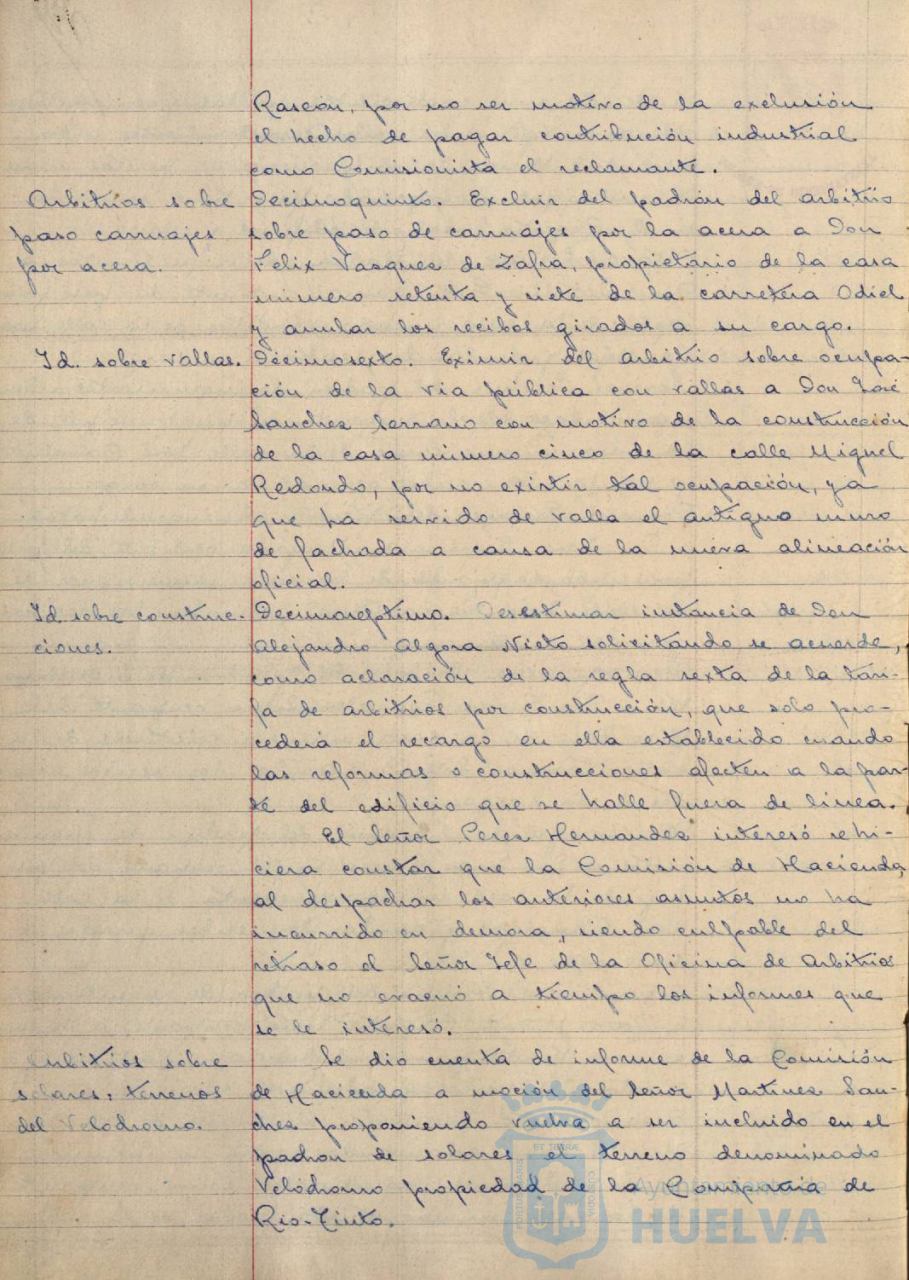 Rascón, por no ser motivo de la exclusión
el hecho de pagar contribución industrial
como Comisionista el reclamante.
Arbitrios sobre
paso carruajes
por acera.
Decimoquinto. Excluir del padrón del arbitrio
sobre paso de carruajes por la acera a Don
Felix Vasquez de Zafra, propietario de la casa
número setenta y siete de la carretera Odiel
y anular los recibos girados a su cargo.
Id. sobre vallas.
Décimosexto. Eximir del arbitrio sobre ocupa-
ción de la via pública con vallas a Don José
Sanchez Serrano con motivo de la construcción
de la casa número cinco de la calle Miguel
Redondo, por no existir tal ocupación, ya
que ha servido de valla el antiguo muro
de fachada a causa de la nueva alineación
oficial.
Id. sobre construc-
ciones.
Decimoseptimo. Desestimar instancia de Don
Alejandro Algora Nieto solicitando se acuerde,
como aclaración de la regla sexta de la tari-
fa de arbitrios por construcción, que solo pro-
cederá el recargo en ella establecido cuando
las reformas o construcciones afecten a la par-
te del edificio que se halle fuera de linea.
El Señor Perez Hernandez interesó se hi-
ciera constar que la Comisión de Hacienda,
al despachar los anteriores asuntos no ha
incurrido en demora, siendo culpable del
retraso el Señor Jefe de la Oficina de Arbitrios
que no evacuó a tiempo los informes que
se le interesó.
Arbitrios sobre
solares: terrenos
del Velodromo.
Se dio cuenta de informe de la Comisión
de Hacienda a moción del Señor Martinez San-
chez proponiendo vuelva a ser incluido en el
padron de solares el terreno denominado
Velódromo propiedad de la Compañia de
Rio-Tinto.
Ayuntamiento de
HUELVA